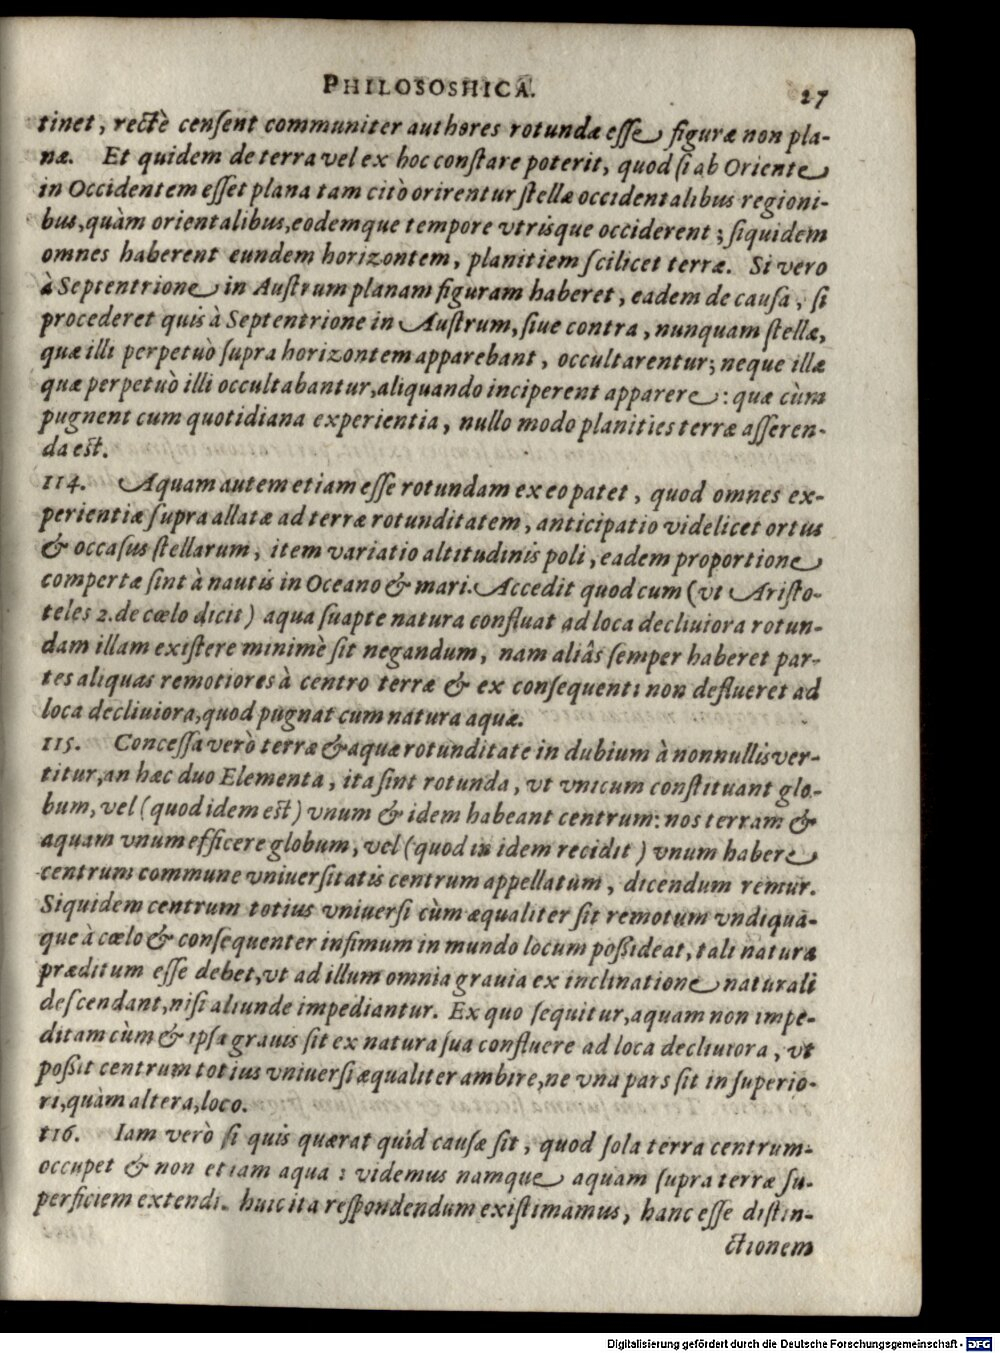 PHILOSOSHICA. 27
tinet, rectè censent communiter authores rotundæ esse figuræ non pla-
næ. Et quidem de terra vel ex hoc constare poterit, quod si ab Oriente
in Occidentem esset plana tam citò orirentur stellæ occidentalibus regioni-
bus, quàm orientalibus, eodemque tempore vtrisque occiderent; siquidem
omnes haberent eundem horizontem, planitiem scilicet terræ. Si vero
à Septentrione in Austrum planam figuram haberet, eadem de causa, si
procederet quis à Septentrione in Austrum, siue contra, nunquam stellæ,
quæ illi perpetuò supra horizontem apparebant, occultarentur; neque illæ
quæ perpetuò illi occultabantur, aliquando inciperent apparere: quæ cùm
pugnent cum quotidiana experientia, nullo modo planities terræ asseren-
da est.
114. Aquam autem etiam esse rotundam ex eo patet, quod omnes ex-
perientiæ supra allatæ ad terræ rotunditatem, anticipatio videlicet ortus
& occasus stellarum, item variatio altitudinis poli, eadem proportione
compertæ sint à nautis in Oceano & mari. Accedit quod cum (vt Aristo-
teles 2. de cœlo dicit) aqua suapte natura confluat ad loca decliuiora rotun-
dam illam existere minimè sit negandum, nam aliâs semper haberet par-
tes aliquas remotiores à centro terræ & ex consequenti non deflueret ad
loca decliuiora, quod pugnat cum natura aquæ.
115. Concessa verò terræ & aquæ rotunditate in dubium à nonnullis ver-
titur, an hæc duo Elementa, ita sint rotunda, vt vnicum constituant glo-
bum, vel (quod idem est) vnum & idem habeant centrum: nos terram &
aquam vnum efficere globum, vel (quod in idem recidit) vnum habere
centrum commune vniuersitatis centrum appellatum, dicendum remur.
Siquidem centrum totius vniuersi cùm æqualiter sit remotum vndiqua-
que à cœlo & consequenter infimum in mundo locum possideat, tali natura
præditum esse debet, vt ad illum omnia grauia ex inclinatione naturali
descendant, nisi aliunde impediantur. Ex quo sequitur, aquam non impe-
ditam cùm & ipsa grauis sit ex natura sua confluere ad loca decliuiora, vt
possit centrum totius vniuersi æqualiter ambire, ne vna pars sit in superio-
ri, quàm altera, loco.
116. Iam verò si quis quærat quid causæ sit, quod sola terra centrum
occupet & non etiam aqua: videmus namque aquam supra terræ su-
perficiem extendi. huic ita respondendum existimamus, hanc esse distin-
ctionem
Digitalisierung gefördert durch die Deutsche Forschungsgemeinschaft - DFG